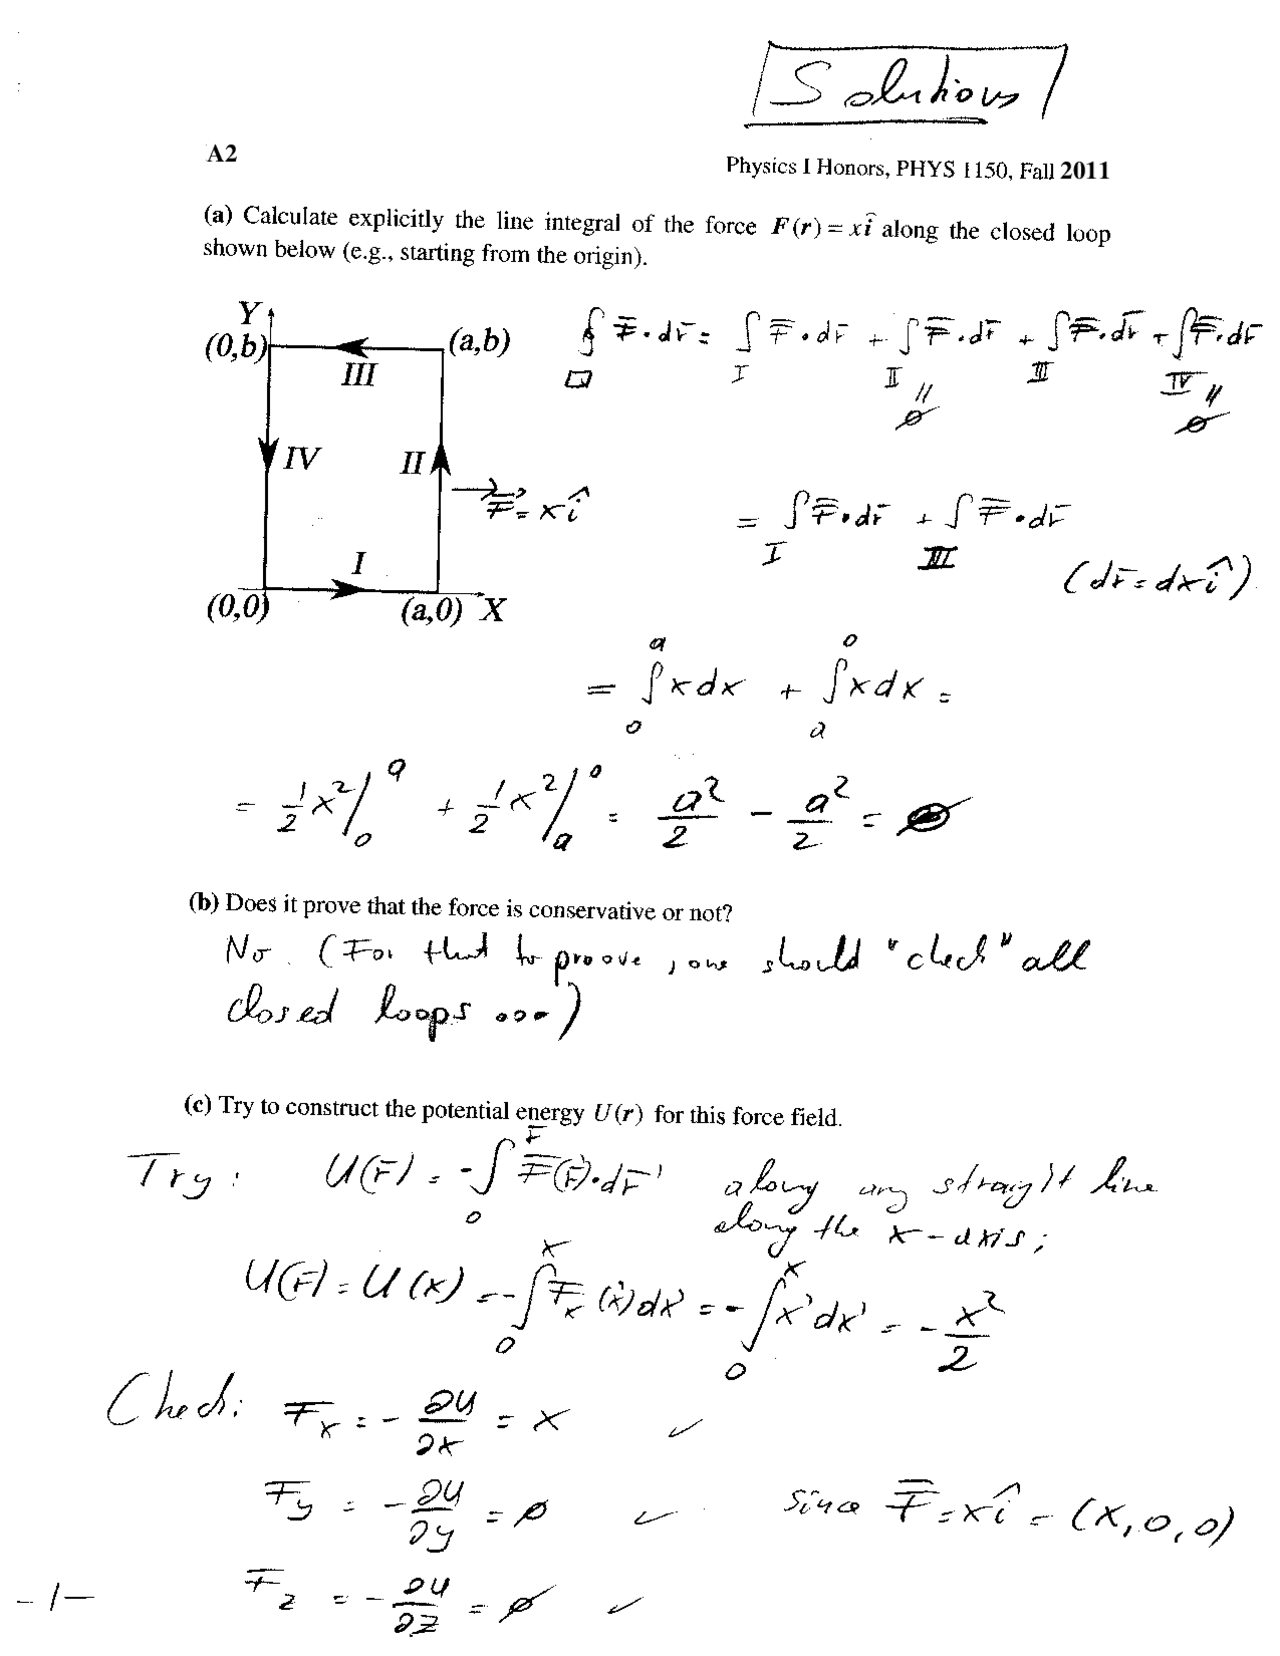 Solutions
A2
Physics I Honors, PHYS 1150, Fall 2011
(a) Calculate explicitly the line integral of the force F(r) = xî along the closed loop
shown below (e.g., starting from the origin).
Y
(0,b)
(a,b)
III
IV
II
I
(0,0)
(a,0)
X
F⃗ = xî
∮□ F̄·dr̄ = ∫I F̄·dr̄ + ∫II F̄·dr̄ + ∫III F̄·dr̄ + ∫IV F̄·dr̄
" ∅ " ∅
= ∫I F̄·dr̄ + ∫III F̄·dr̄
(dr̄ = dxî)
= ∫₀ᵃ xdx + ∫ₐ⁰ xdx =
= 1/2 x²|₀ᵃ + 1/2 x²|ₐ⁰ = a²/2 - a²/2 = ∅
(b) Does it prove that the force is conservative or not?
No. (For that to proove, one should "check" all
closed loops ...)
(c) Try to construct the potential energy U(r) for this force field.
Try: U(r̄) = -∫₀^r̄ F̄(r̄')·dr̄' along any straight line
along the x-axis;
U(r̄) = U(x) = -∫₀ˣ Fₓ(x')dx' = -∫₀ˣ x'dx' = -x²/2
Check: Fₓ = -∂U/∂x = x ✓
Fy = -∂U/∂y = ∅ ✓ since F̄ = xî = (x,0,0)
Fz = -∂U/∂z = ∅ ✓
-1-